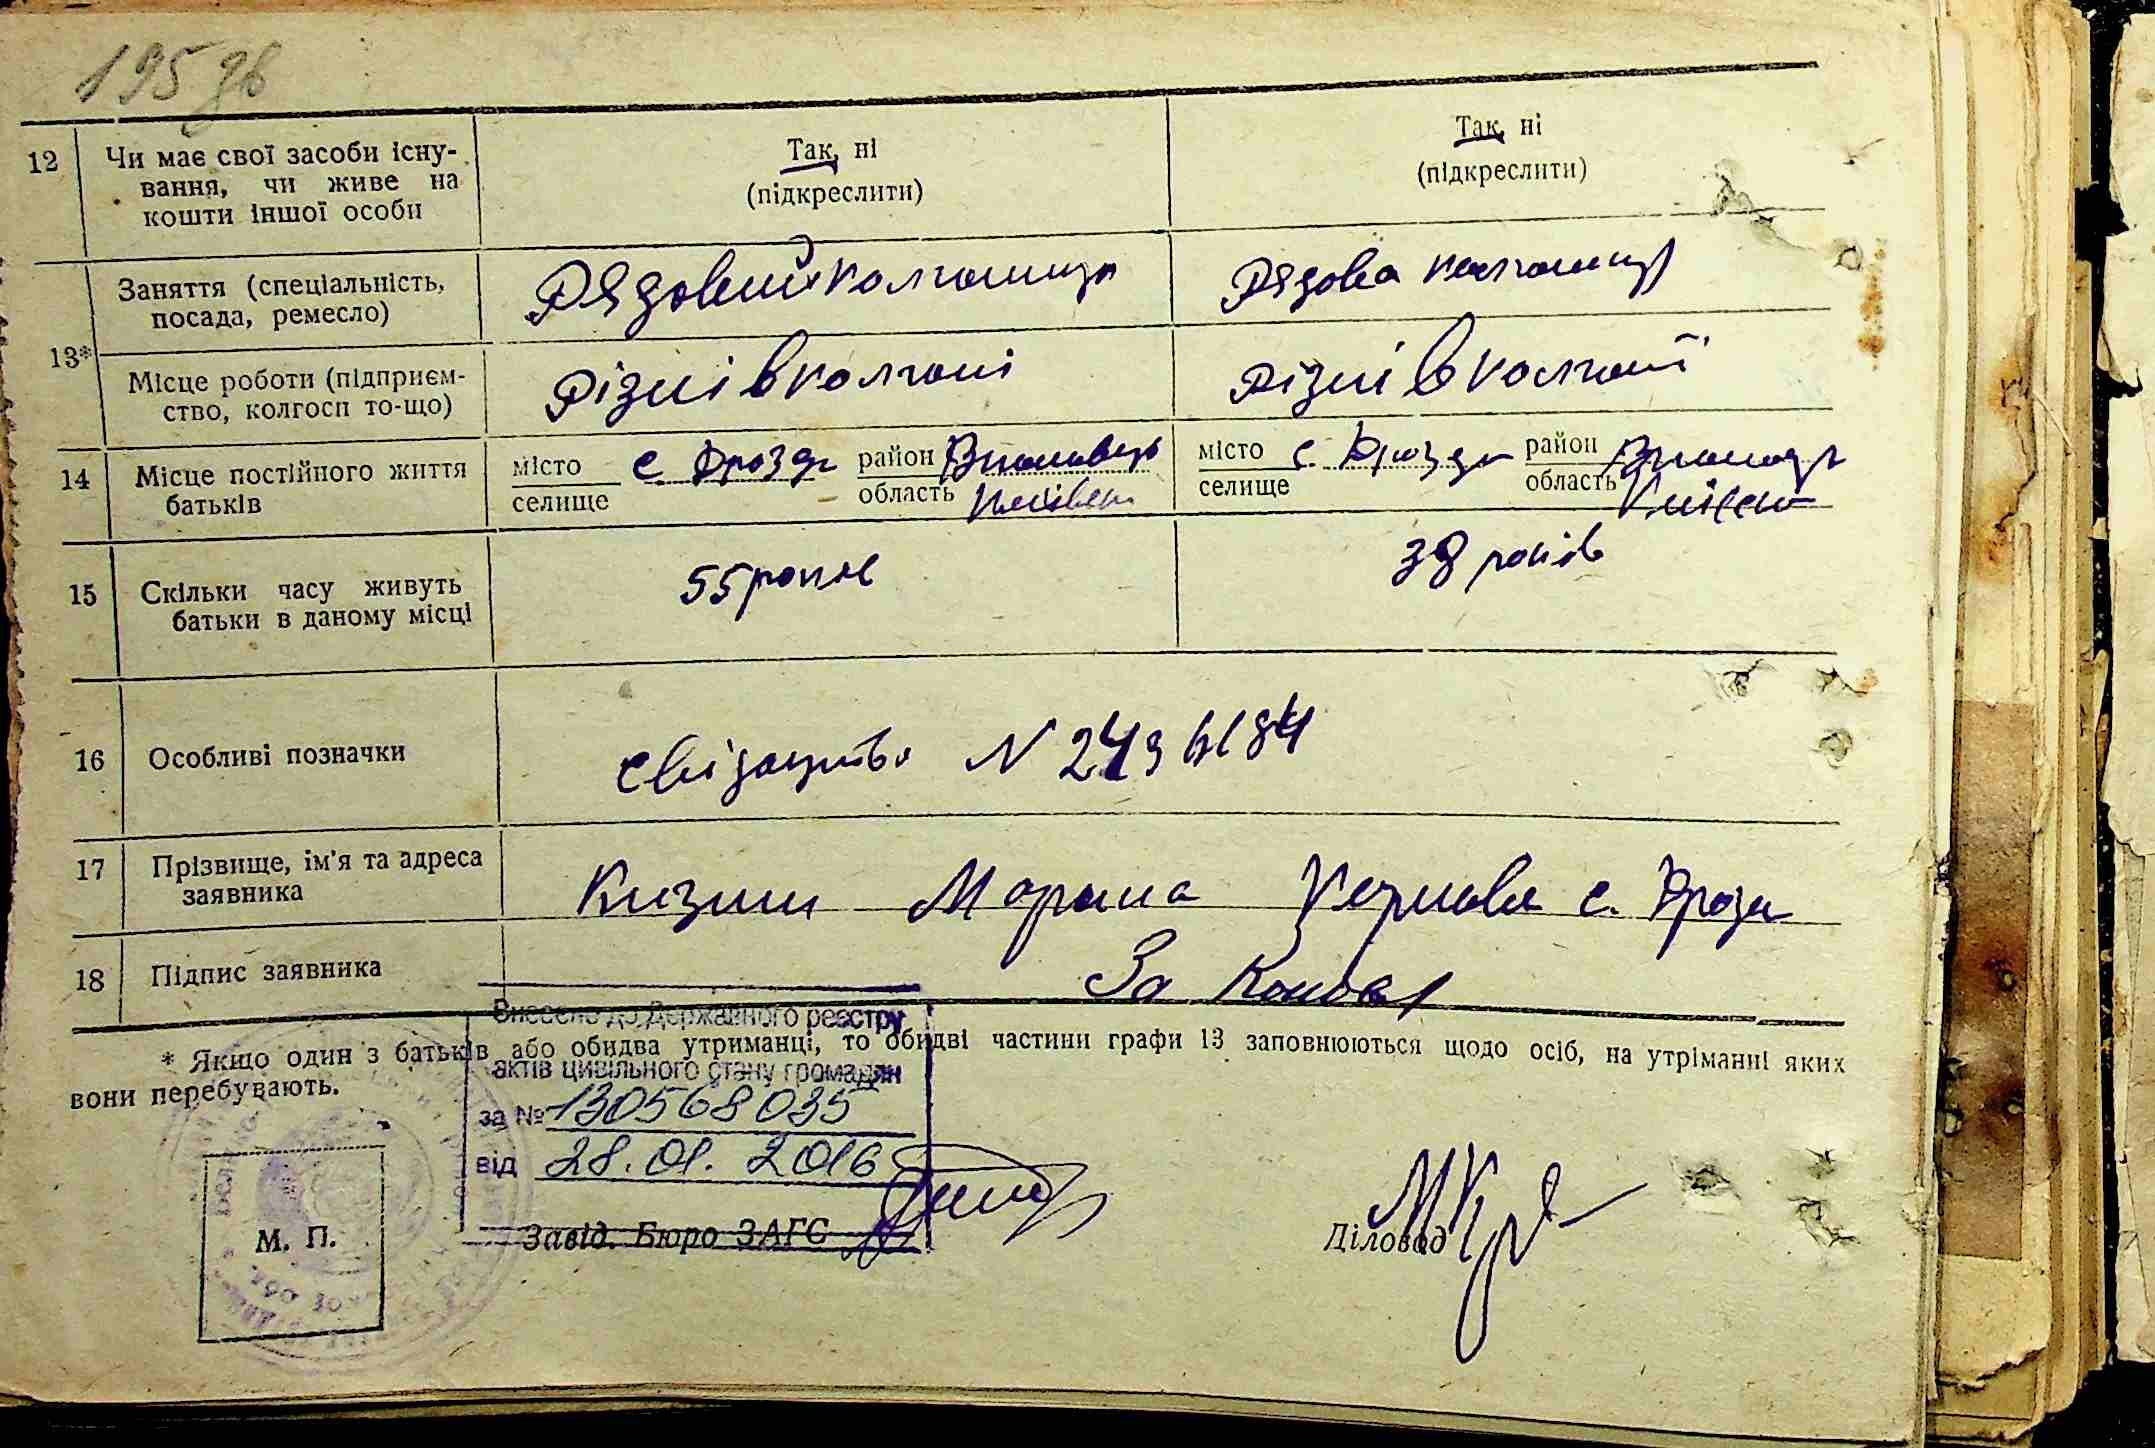 195 зв
12 Чи має свої засоби існу-
вання, чи живе на
кошти іншої особи
Так, ні
(підкреслити)
Так, ні
(підкреслити)
13*
Заняття (спеціальність,
посада, ремесло)
Рядовий колгоспник
Рядова колгоспниця
Місце роботи (підприєм-
ство, колгосп то-що)
Різні в колгоспі
Різні в колгоспі
14 Місце постійного життя
батьків
місто
селище
с. Дрозди
район
область
місто
селище
с. Дрозди
район
область
15 Скільки часу живуть
батьки в даному місці
55 років
38 років
16 Особливі позначки
свідоцтво N
17 Прізвище, ім'я та адреса
заявника
с. Дрозди
18 Підпис заявника
За
Внесено до Державного реєстру
актів цивільного стану громадян
за № 130568035
від 28.01.2016
* Якщо один з батьків або обидва утриманці, то обидві частини графи 13 заповнюються щодо осіб, на утріманні яких
вони перебувають.
М. П.
Завід. Бюро ЗАГС
Діловод